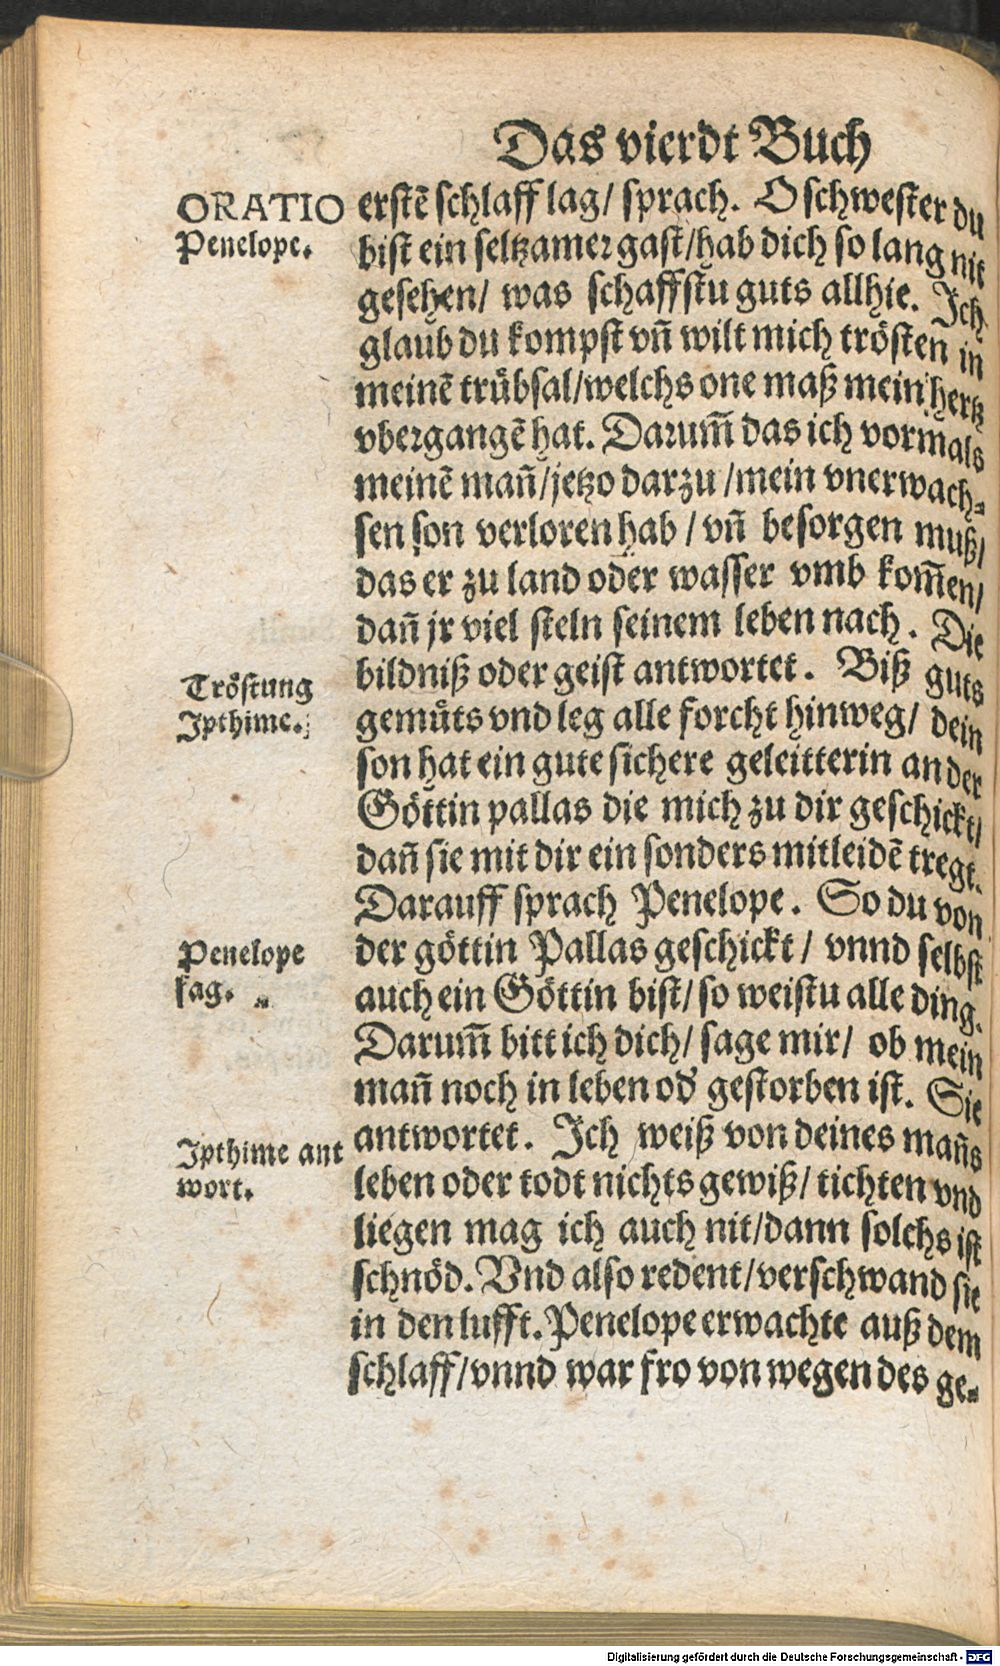 Das vierdt Buch
ORATIO
Penelope.
erstē schlaff lag/ sprach. O schwester du
bist ein seltzamer gast/hab dich so lang nit
gesehen/ was schaffstu guts allhie. Ich
glaub du kompst vñ wilt mich trösten in
meinē trübsal/welchs one maß mein hertz
vbergangē hat. Darum̃ das ich vormals
meinē mañ/jetzo darzu/mein vnerwach⸗
sen son verloren hab/ vñ besorgen muß/
das er zu land oder wasser vmb kom̃en/
dañ jr viel steln seinem leben nach. Die
Tröstung
Ipthime.
bildniß oder geist antwortet. Biß guts
gemüts vnd leg alle forcht hinweg/ dein
son hat ein gute sichere geleitterin an der
Göttin pallas die mich zu dir geschickt/
dañ sie mit dir ein sonders mitleidē tregt.
Darauff sprach Penelope. So du von
Penelope
frag.
der göttin Pallas geschickt/ vnnd selbst
auch ein Göttin bist/ so weistu alle ding.
Darum̃ bitt ich dich/ sage mir/ ob mein
mañ noch in leben od' gestorben ist. Sie
Ipthime ant
wort.
antwortet. Ich weiß von deines mañs
leben oder todt nichts gewiß/ tichten vnd
liegen mag ich auch nit/dann solchs ist
schnöd. Vnd also redent/verschwand sie
in den lufft. Penelope erwachte auß dem
schlaff/vnnd war fro von wegen des ge⸗
Digitalisierung gefördert durch die Deutsche Forschungsgemeinschaft - DFG